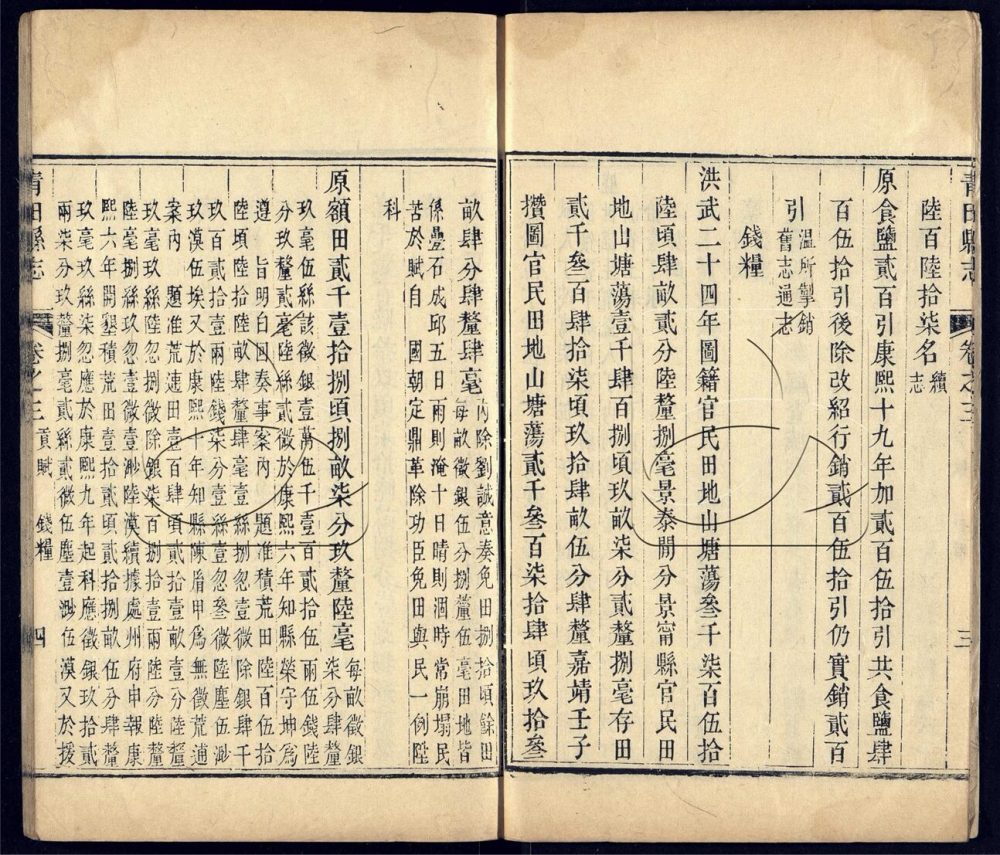 青田縣志
卷之三
三
陸百陸拾柒名續志
原食鹽貳百引康熙十九年加貳百伍拾引共食鹽肆
百伍拾引後除改紹行銷貳百伍拾引仍實銷貳百
引溫所掣銷舊志通志
錢糧
洪武二十四年圖籍官民田地山塘蕩叁千柒百伍拾
陸頃肆畝貳分陸釐捌毫景泰開分景甯縣官民田
地山塘蕩壹千肆百捌頃玖畝柒分貳釐捌毫存田
貳千叁百肆拾柒頃玖拾肆畝伍分肆釐嘉靖壬子
攢圖官民田地山塘蕩貳千叁百柒拾肆頃玖拾叁
畝肆分肆釐肆毫內除劉誠意奏免田捌拾頃餘田
每畝徵銀伍分捌釐伍毫田地皆
係疊石成邱五日雨則淹十日晴則涸時常崩塌民
苦於賦自 國朝定鼎革除功臣免田與民一例陞
科
原額田貳千壹拾捌頃捌畝柒分玖釐陸毫每畝徵銀柒分肆釐
玖毫伍絲該徵銀壹萬伍千壹百貳拾伍兩伍錢陸
分玖釐貳毫陸絲貳微於康熙六年知縣榮守坤爲
遵 旨明白回奏事案內 題准積荒田陸百伍拾
陸頃陸拾陸畝肆釐肆毫壹絲捌忽壹微除銀肆千
玖百貳拾壹兩陸錢柒分壹絲壹忽叁微陸塵伍渺
玖漠伍埃又於康熙十年知縣陳眉甲爲無徵荒逋
案內 題准荒速田壹百肆頃貳拾壹畝壹分陸釐
玖毫玖絲陸忽捌微除銀柒百捌拾壹兩陸分陸釐
陸毫捌絲玖忽壹微壹渺陸漠續據處州府申報康
熙六年開墾積荒田壹拾貳頃貳拾捌畝伍分肆釐
玖毫玖絲柒忽應於康熙九年起科應徵銀玖拾貳
兩柒分玖釐捌毫貳絲貳微伍塵壹渺伍漠又於援
青田縣志
卷之三 貢賦 錢糧
四